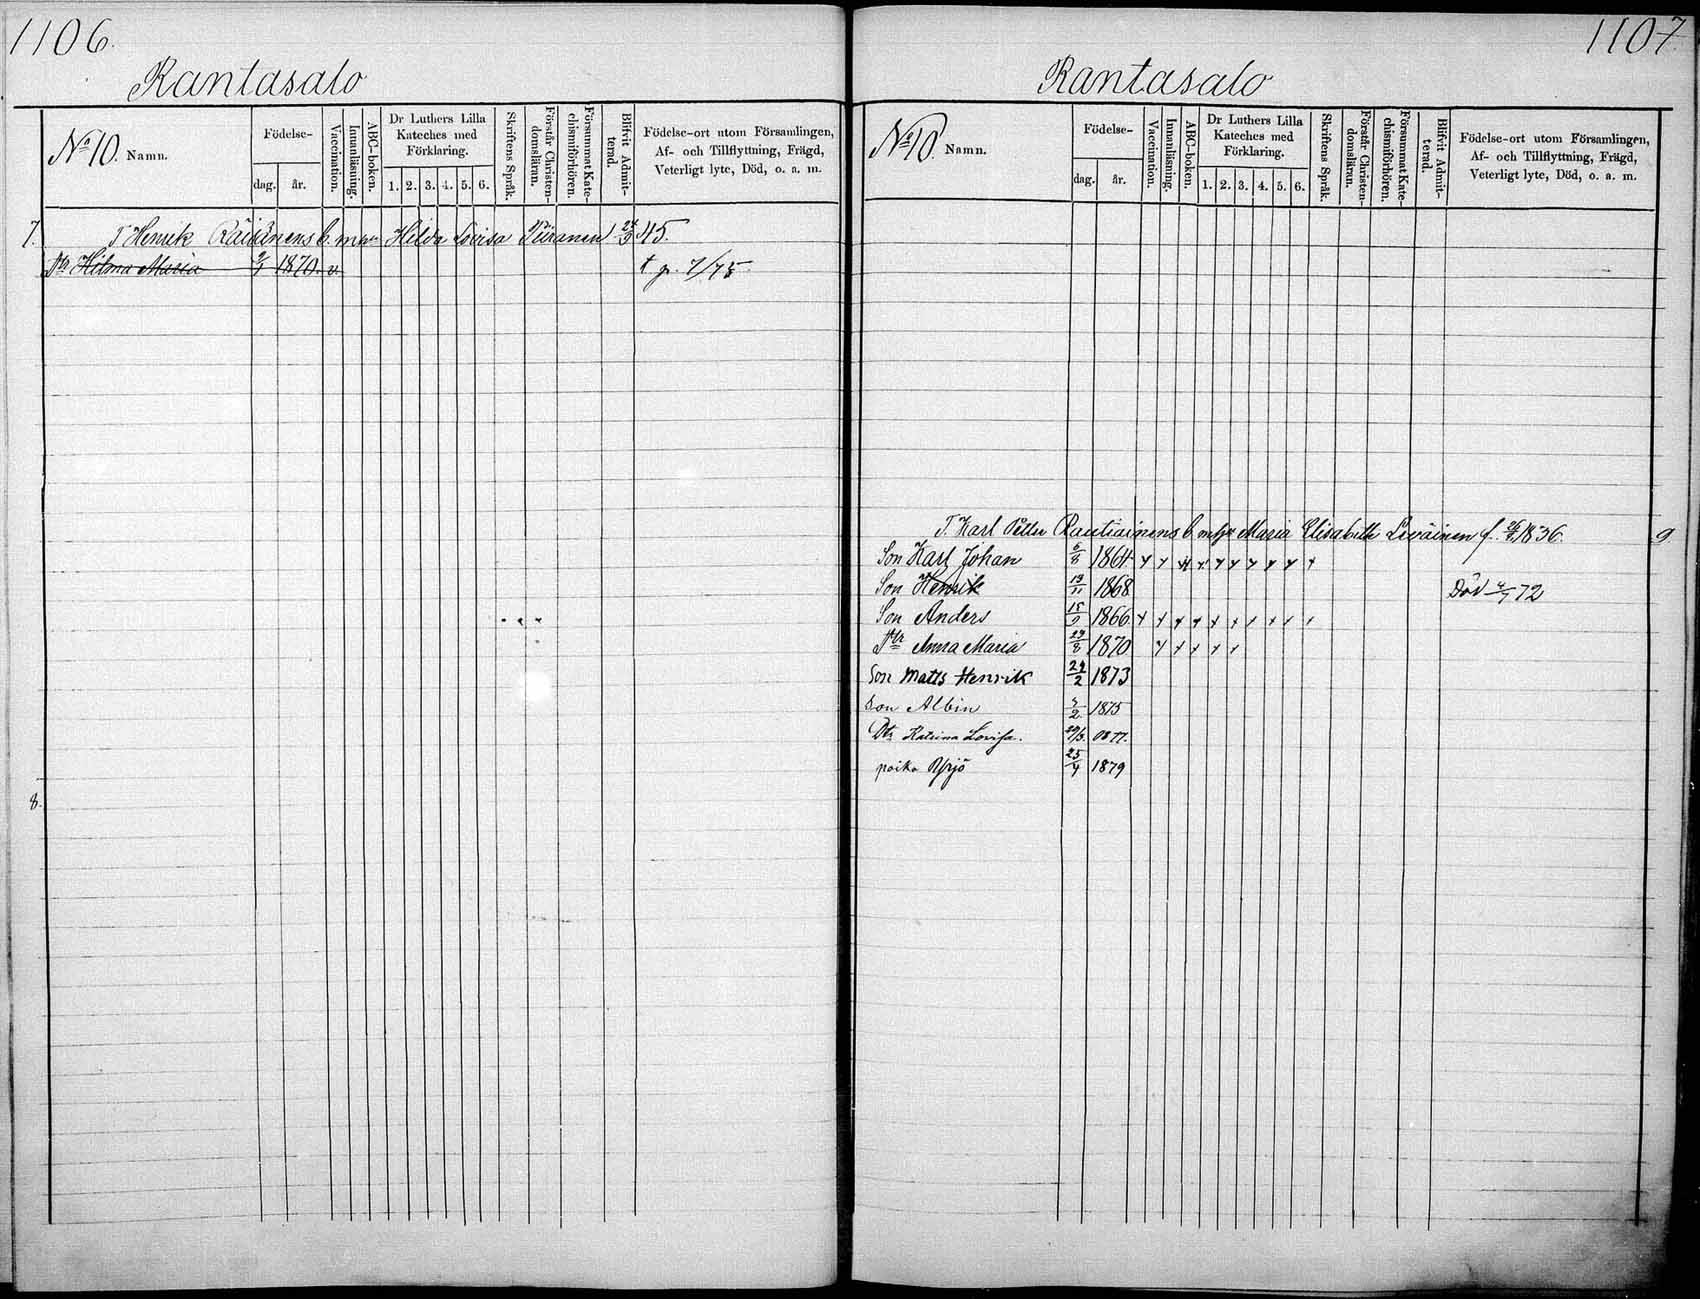 1106.
Rantasalo
No 10. Namn.
Födelse-
dag.
år.
Vaccination.
Innanläsning.
ABC-boken.
Dr Luthers Lilla
Kateches med
Förklaring.
1. 2. 3. 4. 5. 6.
Skriftens Språk.
Förstår Christen-
domsläran.
Försummat Kate-
chismiförhören.
Blifvit Admit-
terad.
Födelse-ort utom Församlingen,
Af- och Tillflyttning, Frägd,
Veterligt lyte, Död, o. a. m.
7. T. Henrik Räisänens b. m h Hilda Lovisa Piiranen 45.
Dtr Hilma Maria 1870. v. † 7/75.
8.
1107
Rantasalo
No 10. Namn.
Födelse-
dag.
år.
Vaccination.
Innanläsning.
ABC-boken.
Dr Luthers Lilla
Kateches med
Förklaring.
1. 2. 3. 4. 5. 6.
Skriftens Språk.
Förstår Christen-
domsläran.
Försummat Kate-
chismiförhören.
Blifvit Admit-
terad.
Födelse-ort utom Församlingen,
Af- och Tillflyttning, Frägd,
Veterligt lyte, Död, o. a. m.
T. Karl Petter Rautiainens b. m h Maria Elisabeth Leväinen f. 1836. 9
Son Karl Johan 6/8 1864
Son Henrik 13/11 1868 Död 72
Son Anders 15/9 1866
Dtr Anna Maria 29/8 1870
Son Matts Henrik 24/2 1873
Son Albin 1875
Dtr Katrina Lovisa. 29/3. 1877.
poika Yrjö 25/4 1879